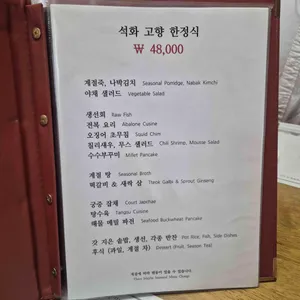 석화 고향 한정식
₩ 48,000
계절죽, 나박김치 Seasonal Porridge, Nabak Kimchi
야채 샐러드 Vegetable Salad
생선회 Raw Fish
전복 요리 Abalone Cuisine
오징어 초무침 Squid Chim
칠리새우, 무스 샐러드 Chili Shrimp, Mousse Salad
수수부꾸미 Millet Pancake
계절 탕 Seasonal Broth
떡갈비 & 새싹 삼 Tteok Galbi & Sprout Ginseng
궁중 잡채 Court Japchae
탕수육 Tangsu Cuisine
해물 메밀 파전 Seafood Buckwheat Pancake
갓 지은 솥밥, 생선, 각종 반찬 Pot Rice, Fish, Side Dishes
후식 (과일, 계절 차) Dessert (Fruit, Season, Tea)
계절에 따라 변동이 있을 수 있습니다